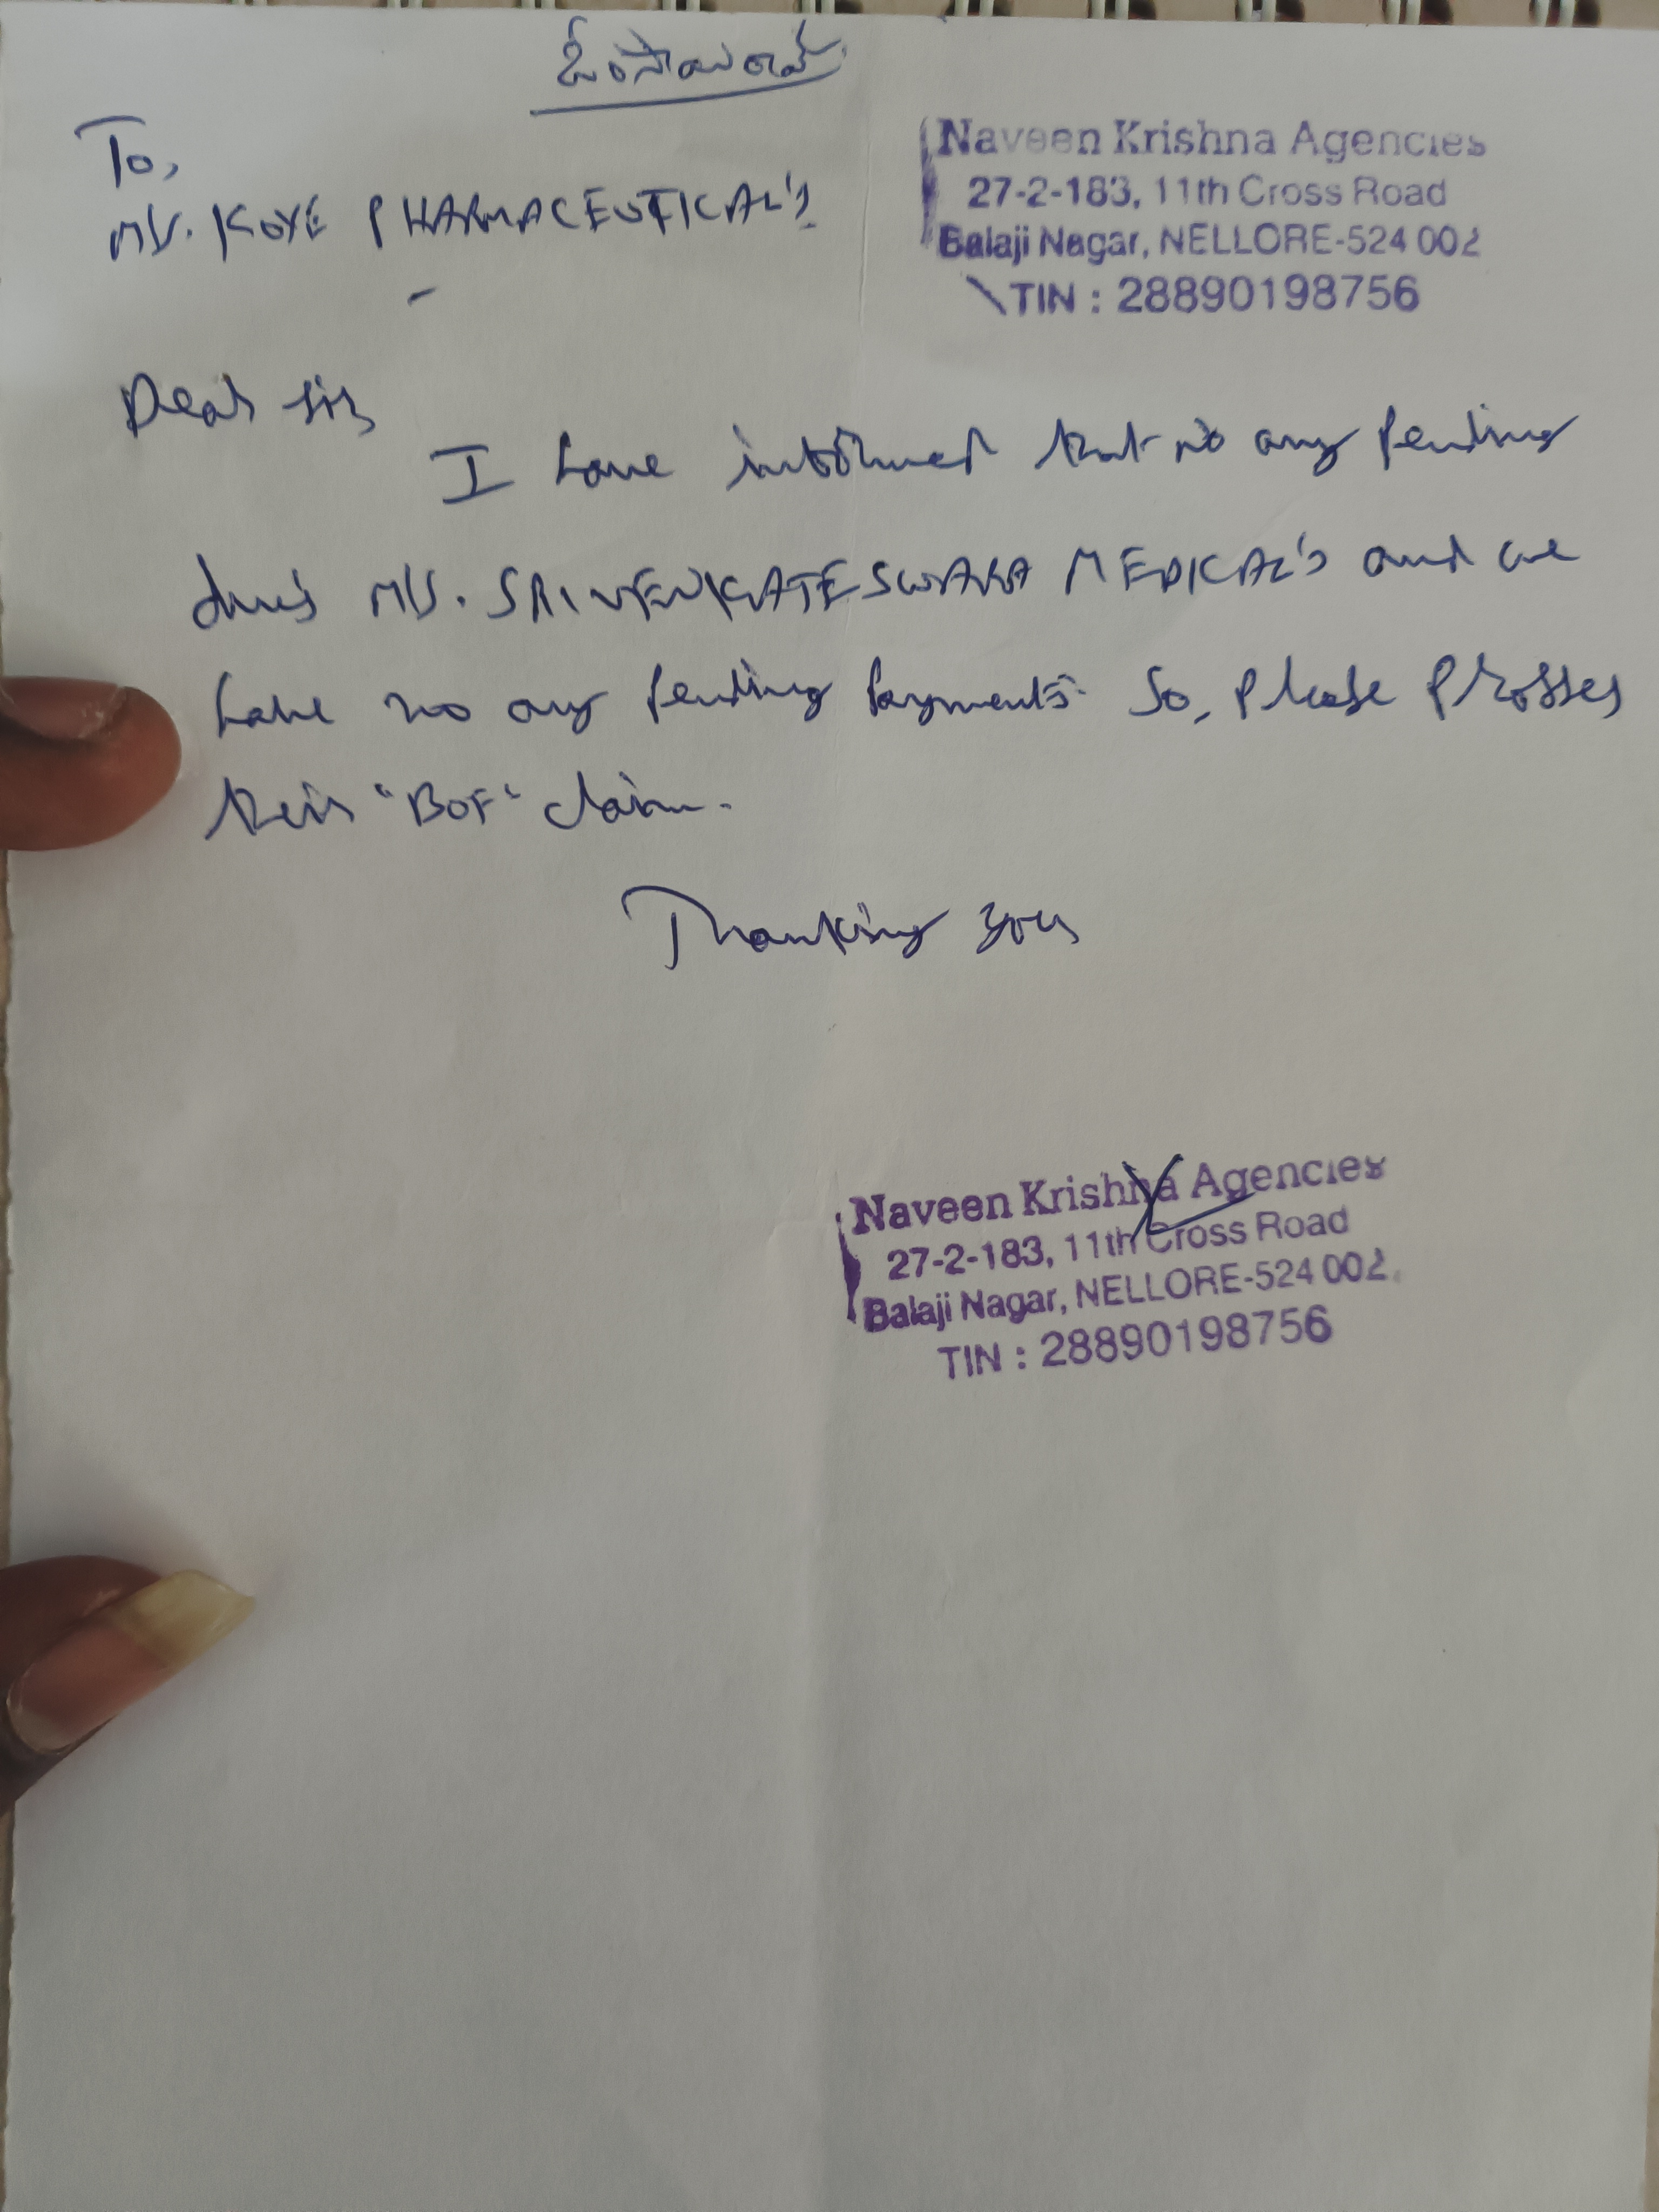 ఓం సాయిరామ్
Naveen Krishna Agencies
27-2-183, 11th Cross Road
Balaji Nagar, NELLORE-524 002
TIN : 28890198756
To,
M/s. KOYE PHARMACEUTICAL'S
Dear Sir,
I have informed that no any pending
due's M/s. SRI VENKATESWARA MEDICAL'S and we
have no any pending payments. So, please prosses
their "BOF" claim.
Thanking you
Naveen Krishna Agencies
27-2-183, 11th Cross Road
Balaji Nagar, NELLORE-524 002.
TIN : 28890198756